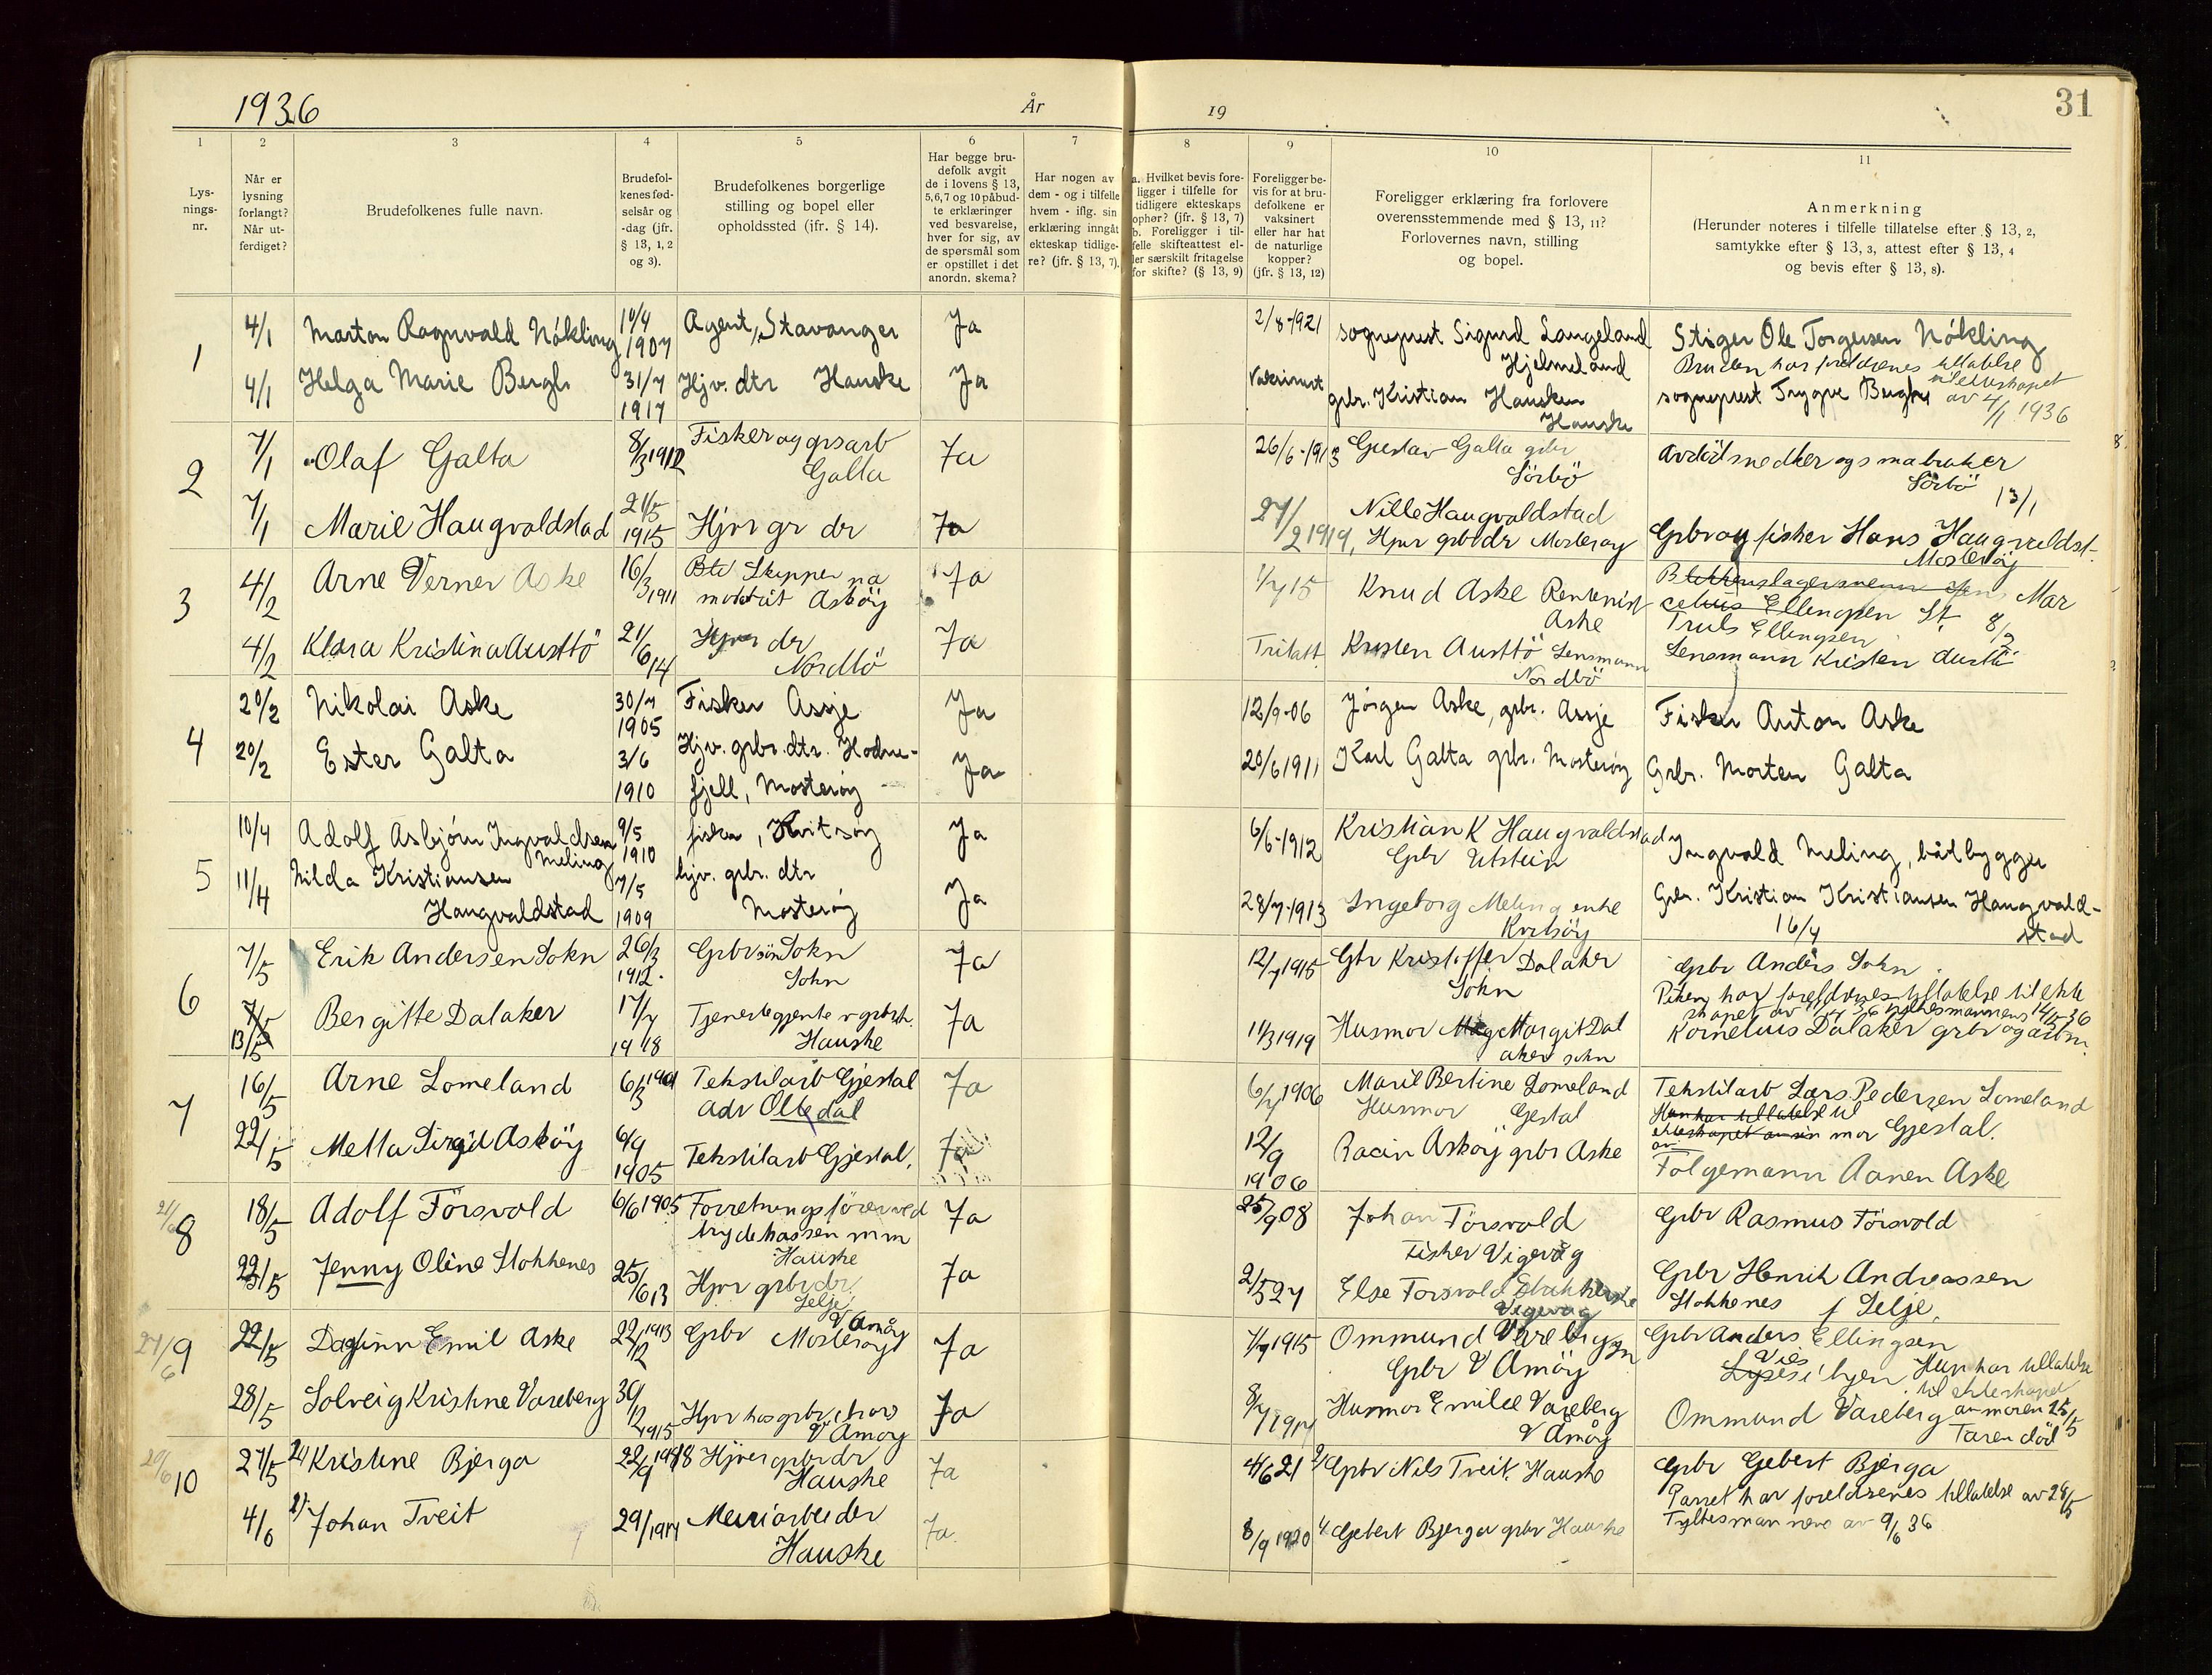 1936
År
19
31
1
2
3
4
5
6
7
8
9
10
11
Lys-
nings-
nr.
Når er
lysning
forlangt?
Når ut-
ferdiget?
Brudefolkenes fulle navn.
Brudefol-
kenes fød-
selsår og
-dag (jfr.
§ 13, 1, 2
og 3).
Brudefolkenes borgerlige
stilling og bopel eller
opholdssted (jfr. § 14).
Har begge bru-
defolk avgit
de i lovens § 13,
5,6,7 og 10 påbud-
te erklæringer
ved besvarelse,
hver for sig, av
de spørsmål som
er opstillet i det
anordn. skema?
Har nogen av
dem - og i tilfelle
hvem - iflg. sin
erklæring inngåt
ekteskap tidlige-
re? (jfr. § 13, 7).
a. Hvilket bevis fore-
ligger i tilfelle for
tidligere ekteskaps
ophør? (jfr. § 13, 7)
b. Foreligger i til-
felle skifteattest el-
ler særskilt fritagelse
for skifte? (§ 13, 9)
Foreligger be-
vis for at bru-
defolkene er
vaksinert
eller har hat
de naturlige
kopper?
(jfr. § 13, 12)
Foreligger erklæring fra forlovere
overensstemmende med § 13, 11?
Forlovernes navn, stilling
og bopel.
Anmerkning
(Herunder noteres i tilfelle tillatelse efter § 13, 2,
samtykke efter § 13, 3, attest efter § 13, 4
og bevis efter § 13, 8).
1
4/1 Marton Ragnvald Nökling 10/4 1907 Agent, Stavanger Ja 2/8-1921 sogneprest Sigurd Langeland Hjelmeland Stiger Ole Torgersen Nökling
Bruden har foreldrenes tillatelse til ekteskapet av 4/1 1936
4/1 Helga Marie Bergh 31/7 1917 Hjv. dtr Hauske Ja Vaksinert grbr. Kristian Hausken Hauske sogneprest Trygve Bergh
2
7/1 Olaf Galta 8/3 1912 Fisker og grsarb Galta Ja 26/6-1913 Gustav Galta grbr Sörbö Avdöd snedker og småbruker Sörbö 13/1
7/1 Marie Haugvaldstad 21/5 1915 Hjvr gr dr Ja 27/2 1919, Nille Haugvaldstad Hjvr grbrdr Mosteröy Grbr og fisker Hans Haugvaldst- Mosteröy
3
4/2 Arne Verner Aske 16/3 1911 Skipper Asköy Ja 1/7 15 Knud Aske Rentenist Aske Ellingsen St. 8/2
Truls Ellingsen
4/2 Klara Kristina Austtö 21/6 14 Hjvr dr Nordbö Ja Kristen Austtö Lensmann Nordbö Lensmann Kristen Austtö
4
20/2 Nikolai Aske 30/7 1905 Fisker Assje Ja 12/9-06 Jörgen Aske, grbr. Assje Fisker Anton Aske
20/2 Ester Galta 3/6 1910 Hjv. grbr. dtr. Hodne-
fjell, Mosteröy Ja 20/6 1911 Karl Galta grbr. Mosteröy Grbr. Morten Galta
5
10/4 Adolf Asbjörn Ingvaldsen Meling 9/5 1910 fisker, Kvitsöy Ja 6/6-1912 Kristian K Haugvaldstad Grbr Utstein Ingvald Meling, båtbygger
11/4 Nilda Kristiansen Haugvaldstad 7/5 1909 hjv. grbr. dtr Mosteröy Ja 28/7-1913 Ingeborg Meling enke Kvitsöy Grbr. Kristian Kristiansen Haugvald-
stad 16/4
6
7/5 Erik Andersen Sokn 26/3 1912 Grbr sön Sokn Sokn Ja 12/7 1915 Gbr Kristoffer Dalaker Sokn Grbr Anders Sokn
Piken har foreldrenes tillatelse til ekte
skapet av fylkesmannens 14/5 36
7/5 13/5 Bergitte Dalaker 17/7 1918 Tjenestegjente Hauske Ja 11/3 1919 Husmor Margit Dal
aker sokn Kornelius Dalaker grbr og arbm.
7
16/5 Arne Lomeland 6/3 1901 Tekstilarb Gjestal
adr Oltedal Ja 6/7 1906 Maril Bertine Lomeland Husmor Gjestal Tekstilarb Lars Pedersen Lomeland
Han har tillatelse til
ekteskapet av sin mor Gjestal.
22/5 Metta Sirgid Asköy 6/9 1905 Tekstilarb Gjestal. Ja 12/9 1906 Racin Asköy grbr Aske Følgemann Aanen Aske
21/6
8
18/5 Adolf Försvold 6/6 1905 Forretningsförer ved
trydekassen m m
Hauske Ja 25/9 08 Johan Försvold Fisker Vigevåg Grbr Rasmus Försvold
23/5 Jenny Oline Stokkenes 25/6 13 Hjvr grbrdr Selje Ja 2/5 27 Else Forsvold Vigevåg Grbr Henrik Andreassen
Stokkenes f Selje.
27/6
9
22/5 Dagfinn Emil Aske 22/12 1913 Grbr Mosteröy V Amöy Ja 7/7 1915 Ommund Vareberg Grbr V Amöy Grbr Anders Ellingsen
Vies i byen Hun har tillatelse
til ekteskapet
av moren 25/5
28/5 Solveig Kristine Vareberg 30/12 1915 Hjvr hos grbr V Amöy Ja 8/7 1917 Husmor Emilie Vareberg V Amöy Ommund Vareberg Faren död
20/6
10
27/5 2) Kristine Bjerga 22/9 1918 Hjver grbrdr Hauske Ja 4/6 21 Grbr Nils Treit. Hauske Grbr Gebert Bjerga
Parret har foreldrenes tillatelse av 28/5
4/6 1) Johan Treit 29/ 1917 Meieriarbeider Hauske Ja. 8/9 1920 Gebert Bjerga grbr Hauske Fylkesmannens av 9/6 36